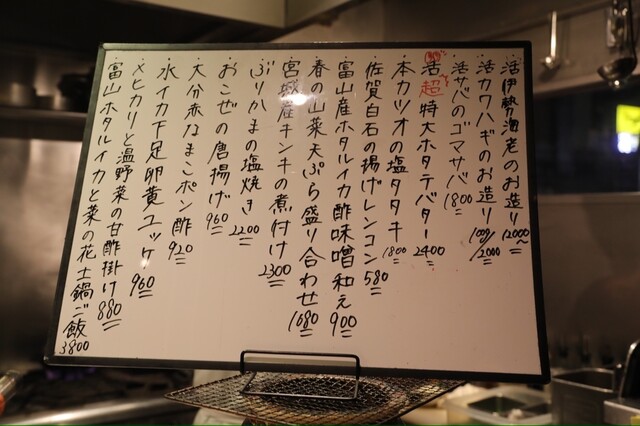 ・活伊勢海老のお造り 12000〜
・活カワハギのお造り 1000/2000
・活サバのゴマサバ 1800
・活超特大ホタテバター 2400
・本カツオの塩タタキ 1800
・佐賀白石の揚げレンコン 580
・富山産ホタルイカ酢味噌和え 900
・春の山菜天ぷら盛り合わせ 1680
・宮城産キンキの煮付け 2300
・ぶりかまの塩焼き 2200
・おこぜの唐揚げ 960
・大分赤なまこポン酢 920
・水イカ下足卵黄ユッケ 960
・メヒカリと温野菜の甘酢掛け 880
・富山ホタルイカと菜の花土鍋ご飯 3800